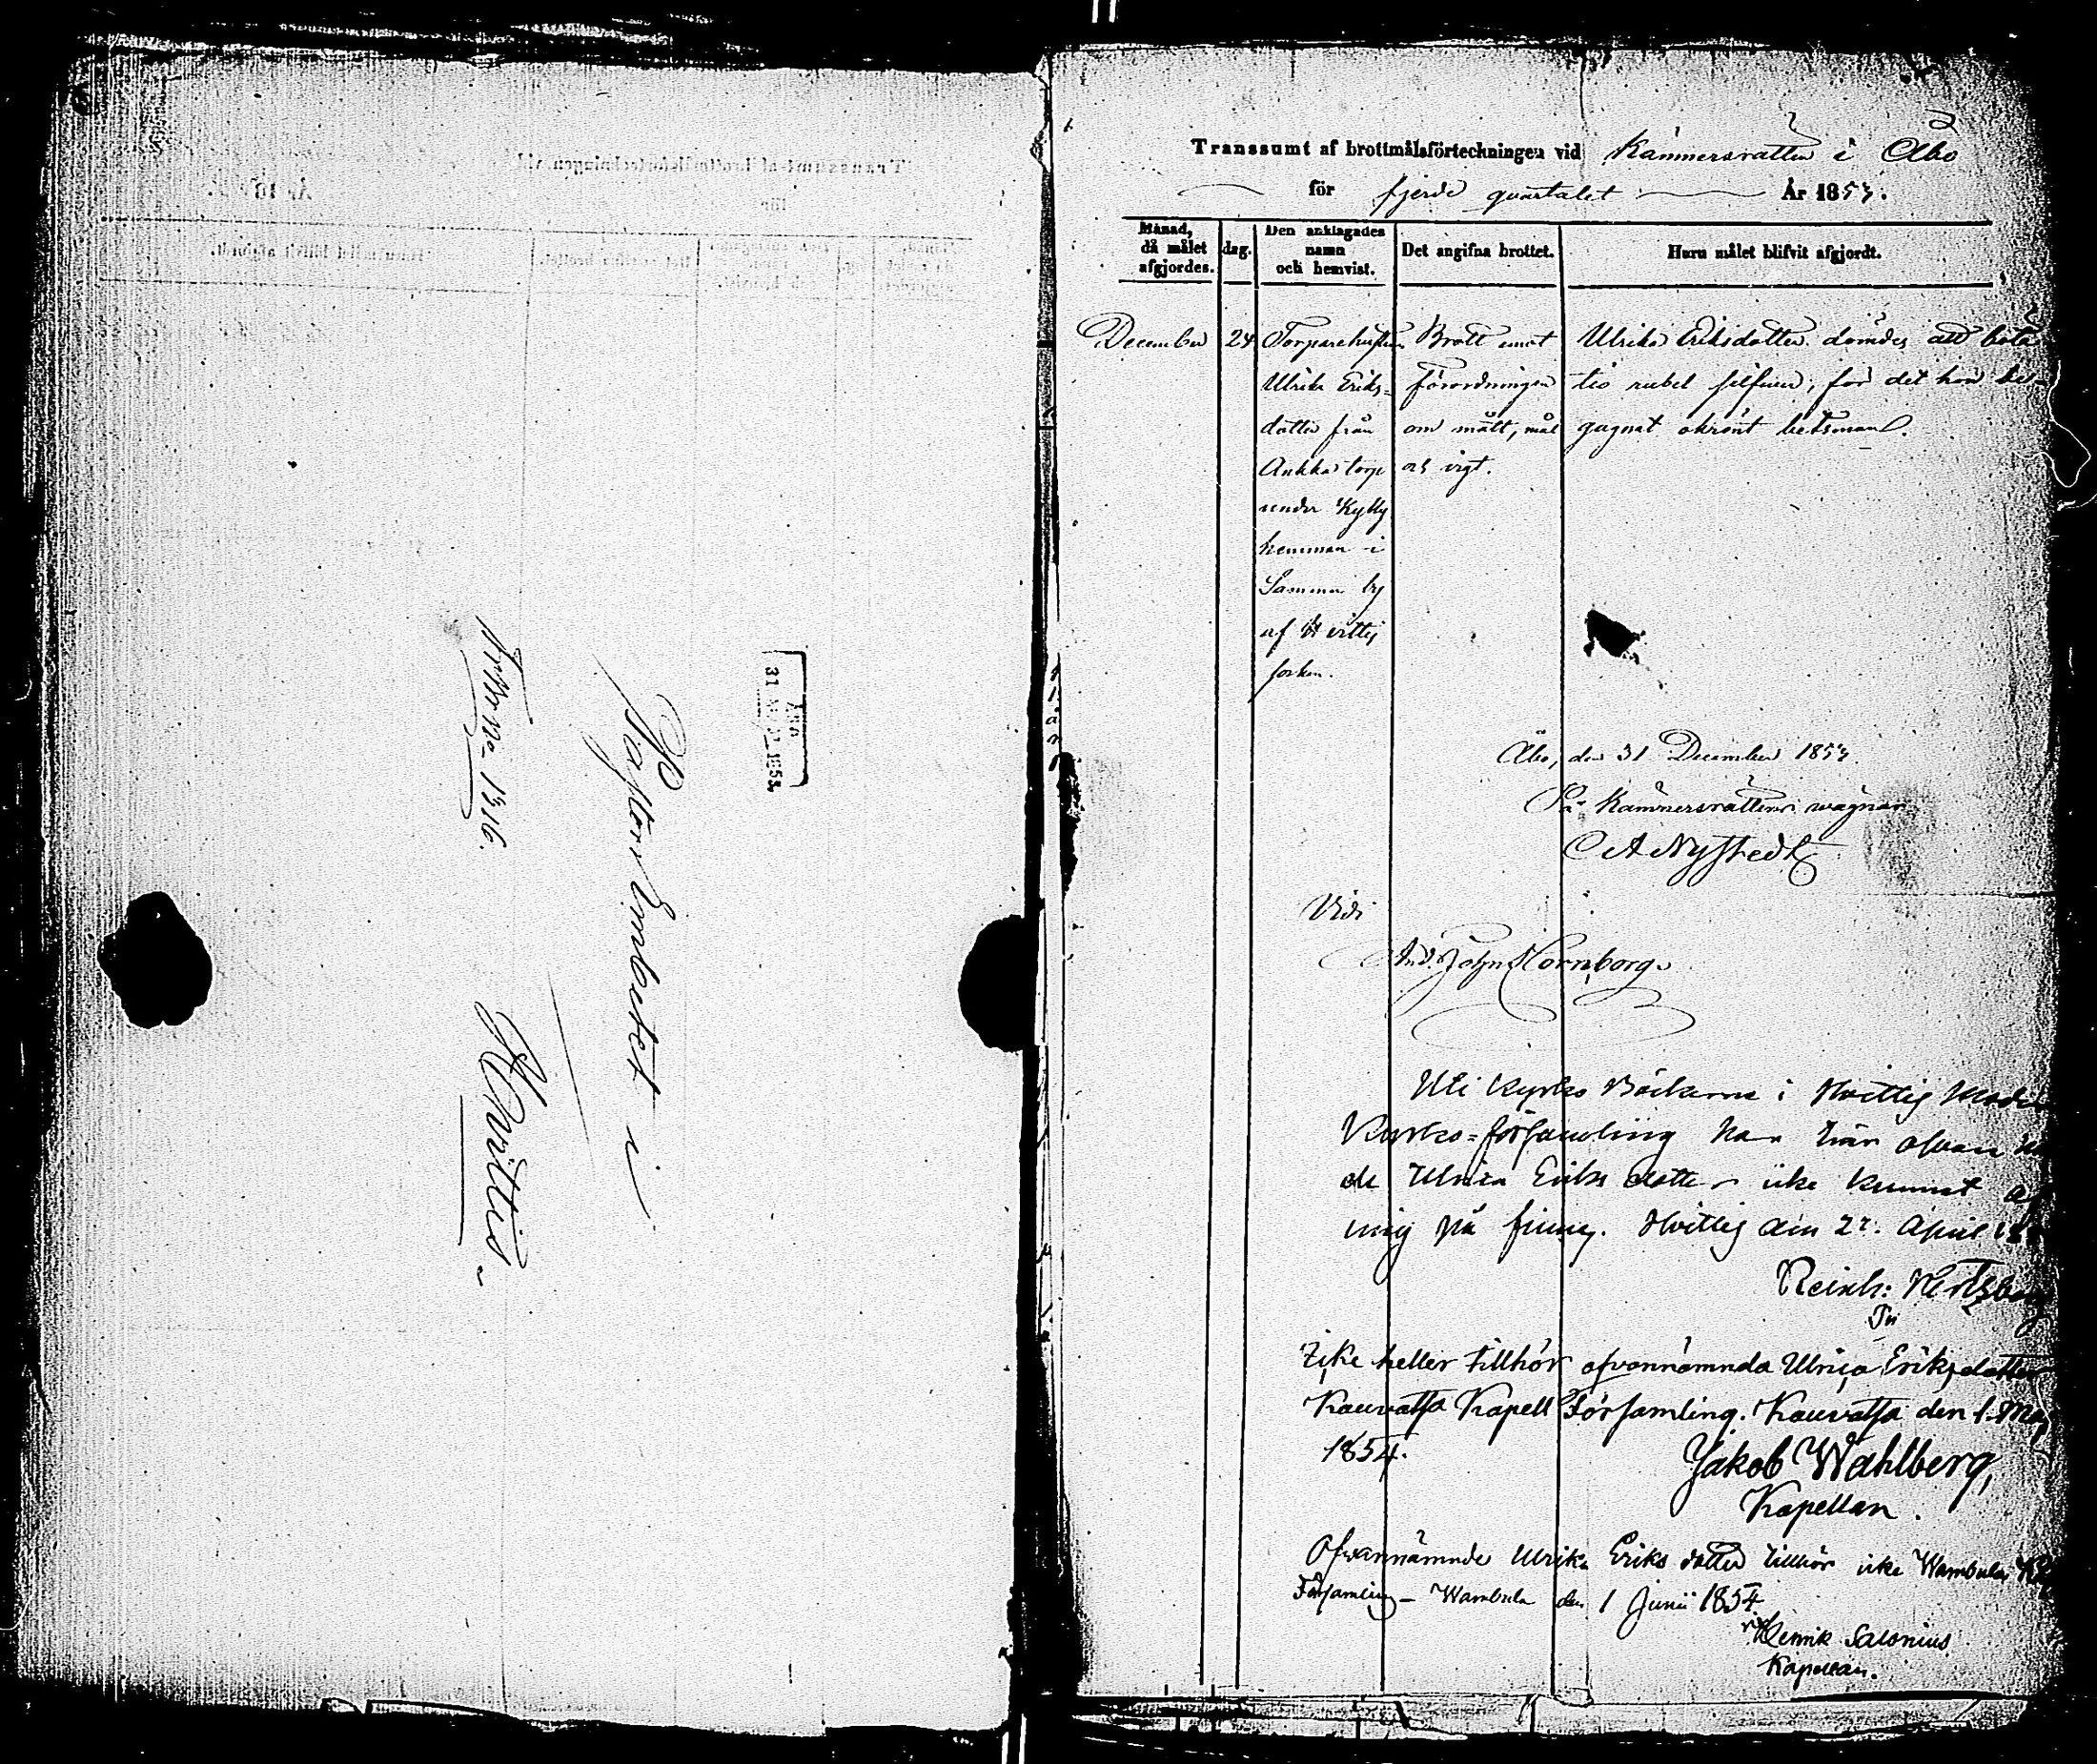 Pastors Embetet i
Hvittis
ÅBO
31
2
Transsumt af brottmålsförteckningen vid Kämnersrätten i Åbo
för fjerde quartalet År 1853.
Månad, då målet afgjordes.
dag.
Den anklagades namn och hemvist.
Det angifna brottet.
Huru målet blifvit afgjordt.
December 24 Torparehustrun Brott emot Ulrika Eriksdotter dömdes att böta
Ulrika Eriks- förordningen tio rubel silfver, för det hon be-
dotter från om mått, mål gagnat okrönt betsman.
Ankka torp och vigt.
under Kylly
hemman i
Samma by
af Hvittis
socken.
Åbo, den 31 December 1853.
På Kämnersrättens wägnar
C A Nystedt
Vidi
And. John Hornborg.
Uti Kyrko Böckerne i Hvittis Moder
Kyrko-församling har här ofvan
de Ulrica Eriksdotter icke kunnat af
mig på finnas. Hvittis den 27. April
Reinh: Hertzberg
Icke heller tillhör ofvannämnda Ulrica Eriksdotter
Kauvatsa Kapell Församling. Kauvatsa den 1. Maj
1854.
Jakob Wahlberg,
Kapellan.
Ofvannämnde Ulrika Eriksdotter tillhör icke Wambula
Församling - Wambula den 1 Junii 1854
Henrik Salonius
Kapellan.